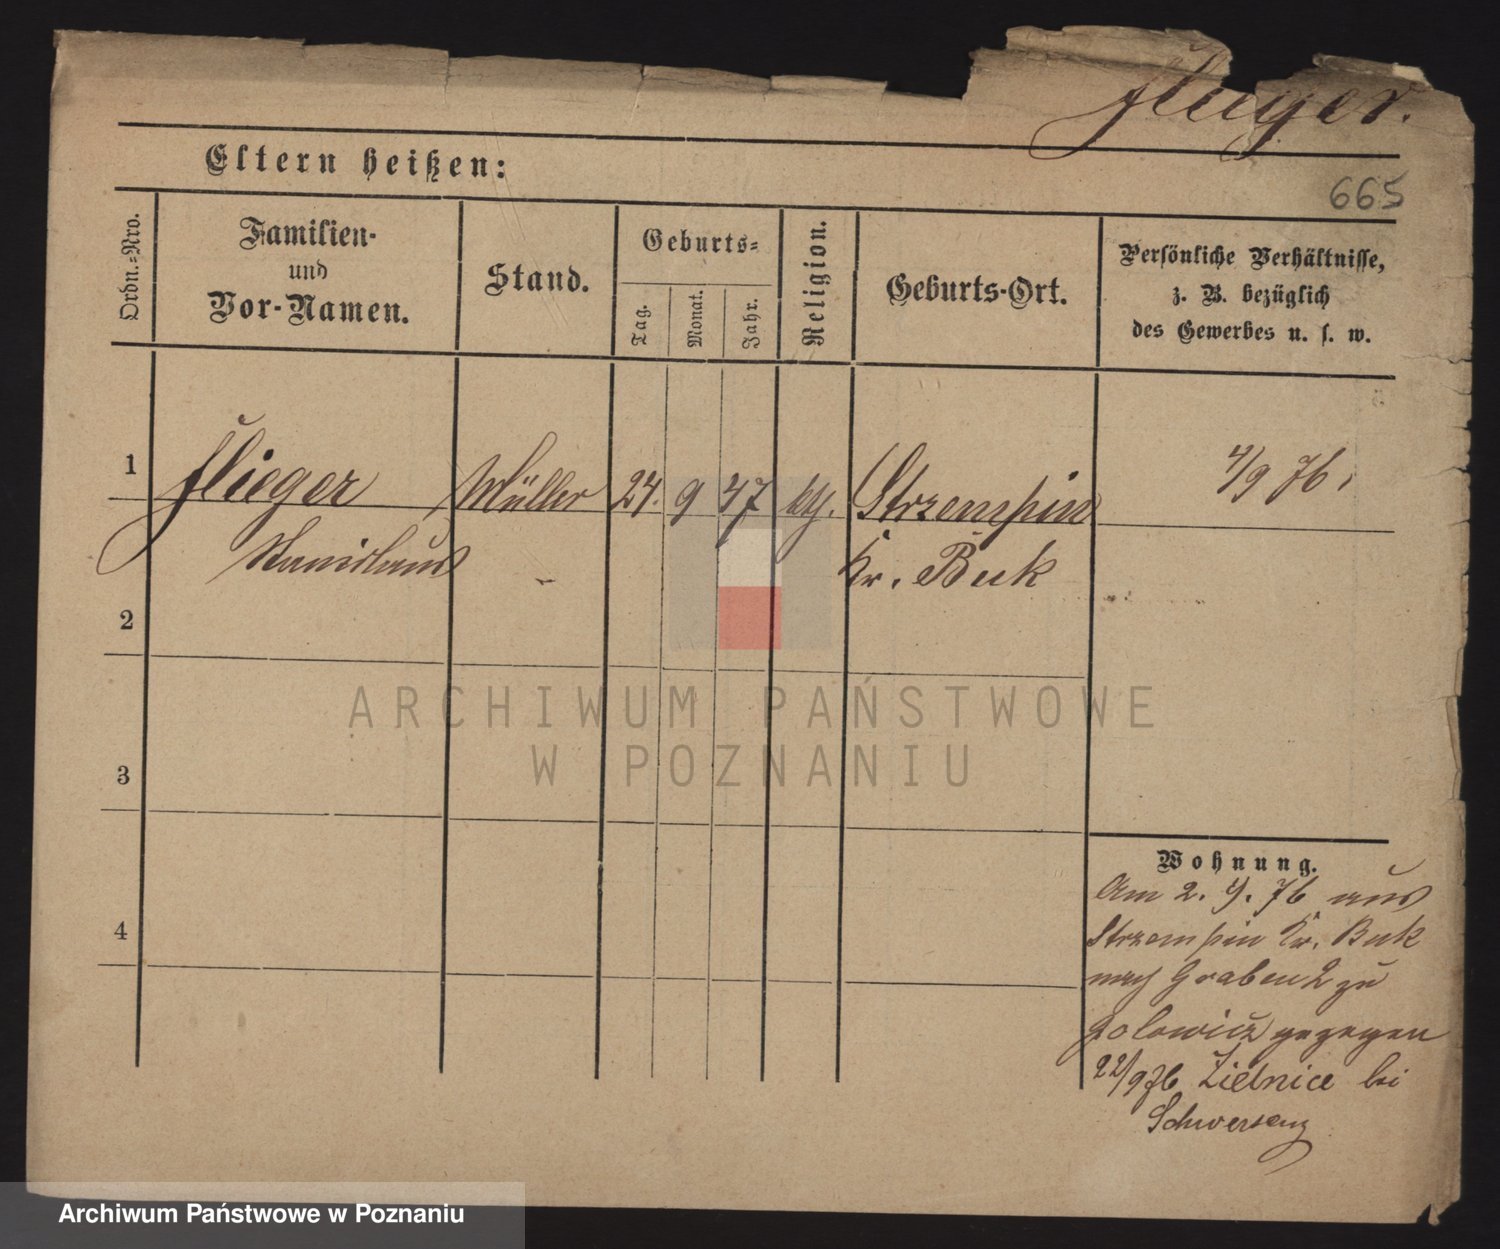 Flieger.
665
Eltern heißen:
Ordn.=Nro.
Familien-
und
Vor-Namen.
Stand.
Geburts=
Tag.
Monat.
Jahr.
Religion.
Geburts-Ort.
Persönliche Verhältnisse,
z. B. bezüglich
des Gewerbes u. s. w.
1 Flieger Müller 24. 9 47 kth. Strzempin 4/9 76.
Stanislaus Kr. Buk
2
3
4
Wohnung.
Am 2. 9. 76 aus
Strzempin Kr. Buk
nach Graben 2 zu
gezogen
22/9 76 Zielnice bei
Schwersenz
ARCHIWUM PAŃSTWOWE
W POZNANIU
Archiwum Państwowe w Poznaniu